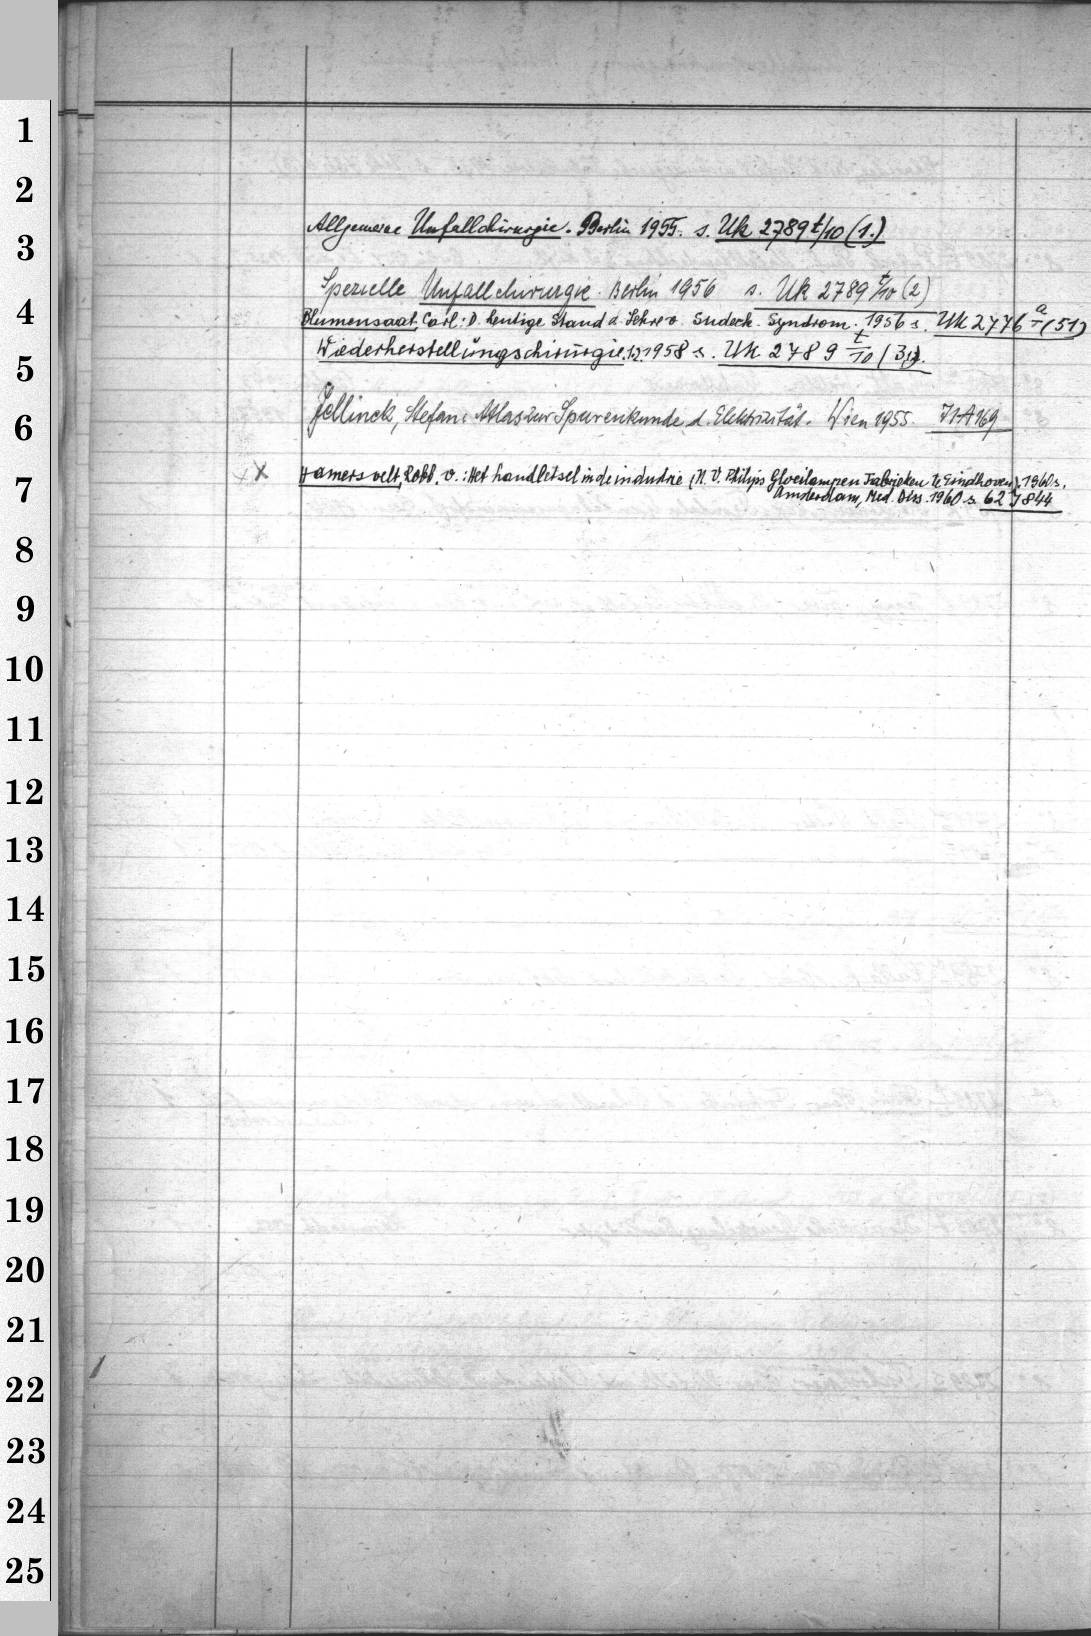 1
2
3
Allgemeine Unfallchirurgie. Berlin 1955. s. Uk 2789 t/10 (1.)
Spezielle Unfallchirurgie. Berlin 1956 s. Uk 2789 t/10 (2)
4
Blumensaat, Carl: D. heutige Stand d. Lehre v. Sudeck-Syndrom. 1956 s. Uk 2776 a/- (51)
5
Wiederherstellungschirurgie. 1958 s. Uk 2789 t/10 (3)
6
Jellinek, Stefan: Atlas zur Spurenkunde d. Elektrizität. Wien 1955. J1A169
7
X Hamersvelt, Robt. v.: Het handletsel in de industrie (N. V. Philips Gloeilampen Fabrieken te Eindhoven). 1960 s.
Amsterdam, Med. Diss. 1960 s. 62 7844
8
9
10
11
12
13
14
15
16
17
18
19
20
21
22
23
24
25